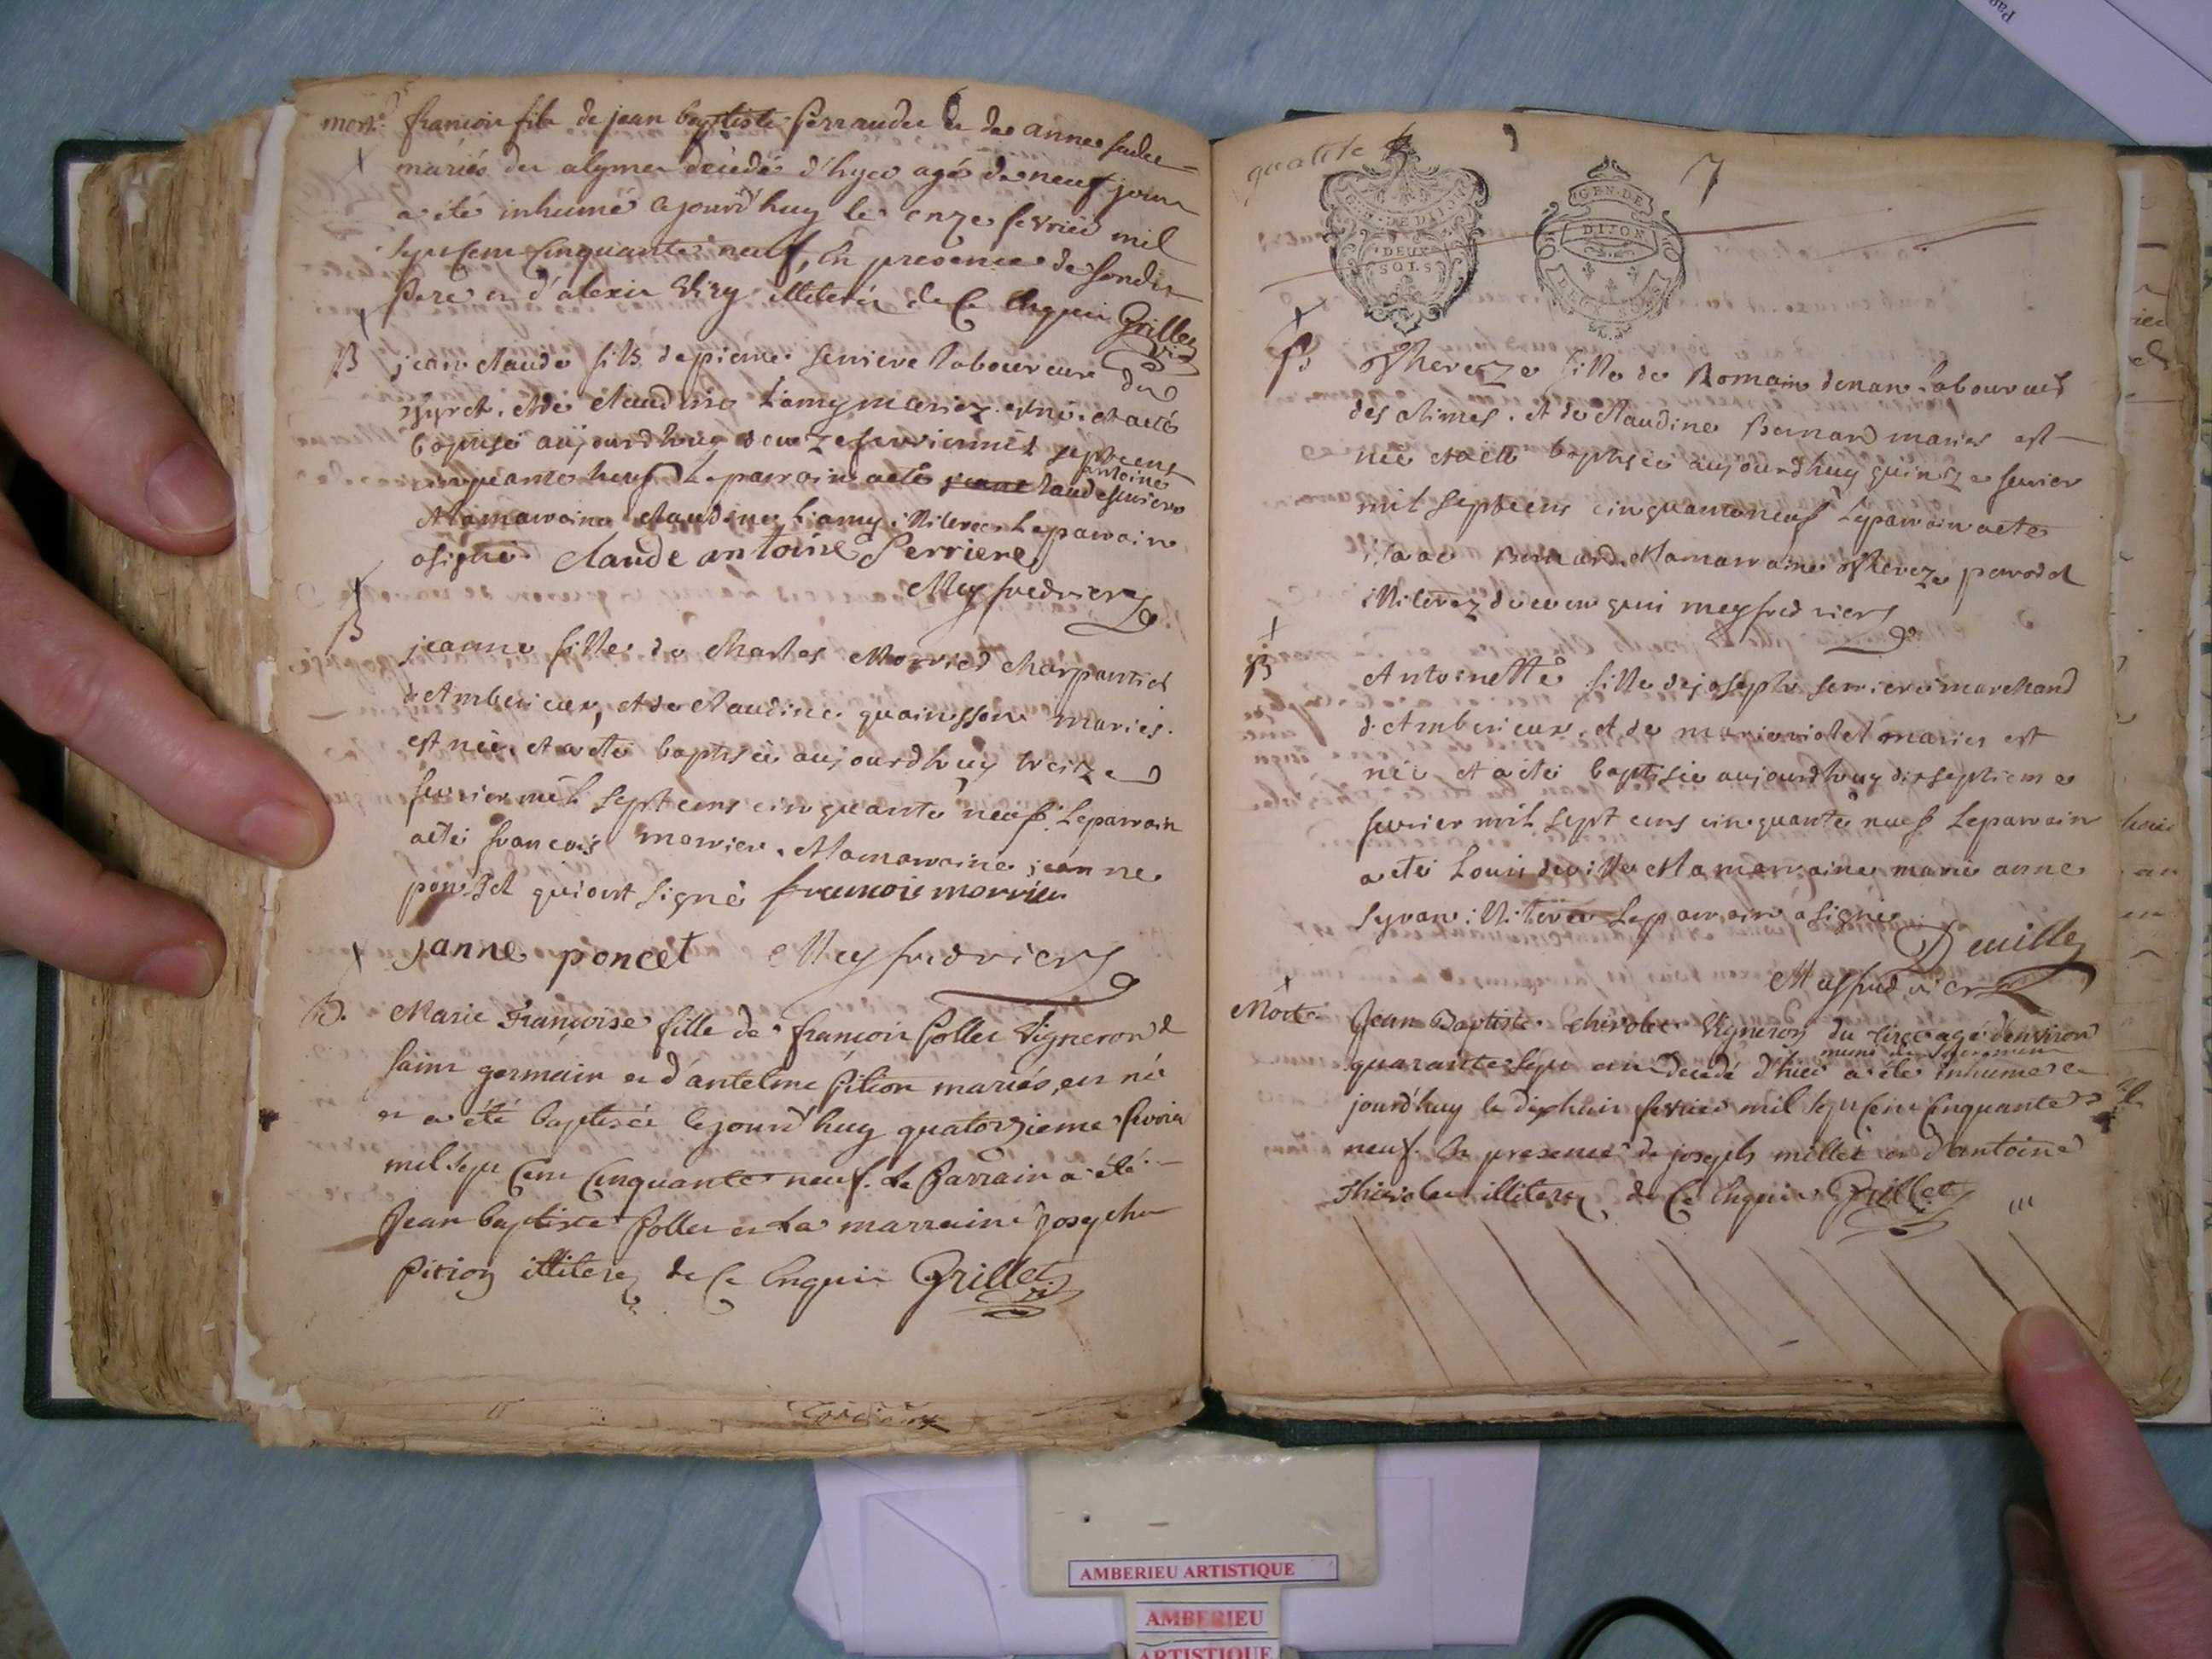 mort.
françois fils de jean baptiste perraudet et de anne
mariés des alymes décédé d'hyer agé de neuf jours
a été inhumé ajourd'huy le onze fevrier mil
sept cent cinquante neuf, en presence de sondit
pere et d'alexis illiterés de ce enquis Grillet
B
jean claude fils de pierre serriere laboureur du
et de claudine l'amy mariez est né et a eté
baptisé aujourdhuy douze fevrier mil sept cens
cinquante neuf Le parrain a eté claude antoine serriere
et la marraine claudine l'amy illiteree Le parrain
a signé claude antoine Serriere
Meyfredriers
B
jeanne fille de charles Morrier charpantier
d'Amberieux, et de claudine mariés
est née et a eté baptisée aujourdhuy treize
fevrier mil sept cens cinquante neuf. Le parrain
a eté francois morrier et la marraine jeanne
poncet qui ont signé francois morrier
janne poncet Meyfredriers
B.
Marie Françoise fille de françois Vigneron de
saint germain et d'antelme pition mariés, est né
et a été baptisée cejourd'huy quatorzieme fevrier
mil sept cent cinquante neuf. Le Parrain a été
Jean baptiste et La marraine Josephe
pition illiterez de ce enquis Grillet
qualite
GEN DE DIJON
DEUX
SOLS
GEN. DE
DIJON
7
B
Thereze fille de Romain laboureur
des alimes. et de claudine Bernard mariés est
née et a eté baptisée aujourdhuy quinze fevrier
mil sept cens cinquante neuf Le parrain a eté
isaac Bernard et la marraine Thereze
illiterez de ce enquis meyfredriers
B
Antoinette fille de joseph serriere marchand
d'Amberieux. et de marie violet mariés est
née et a eté baptisée aujourdhuy dixseptieme
fevrier mil sept cens cinquante neuf Le parrain
a eté Louis deville et la marraine marie anne
syvan illiteree Le parrain a signé
Deville
Meyfredriers
Mort.
Jean Baptiste chivolet Vigneron du tiret agé d'environ
quarante sept ans decedé d'hier muni des sacremens a été inhumé ce
jourd'huy le dixhuit fevrier mil sept cent cinquante
neuf. En presence de joseph millet et d'antoine
chivolet illiterez de ce enquis Grillet
AMBERIEU ARTISTIQUE
AMBERIEU
ARTISTIQUE